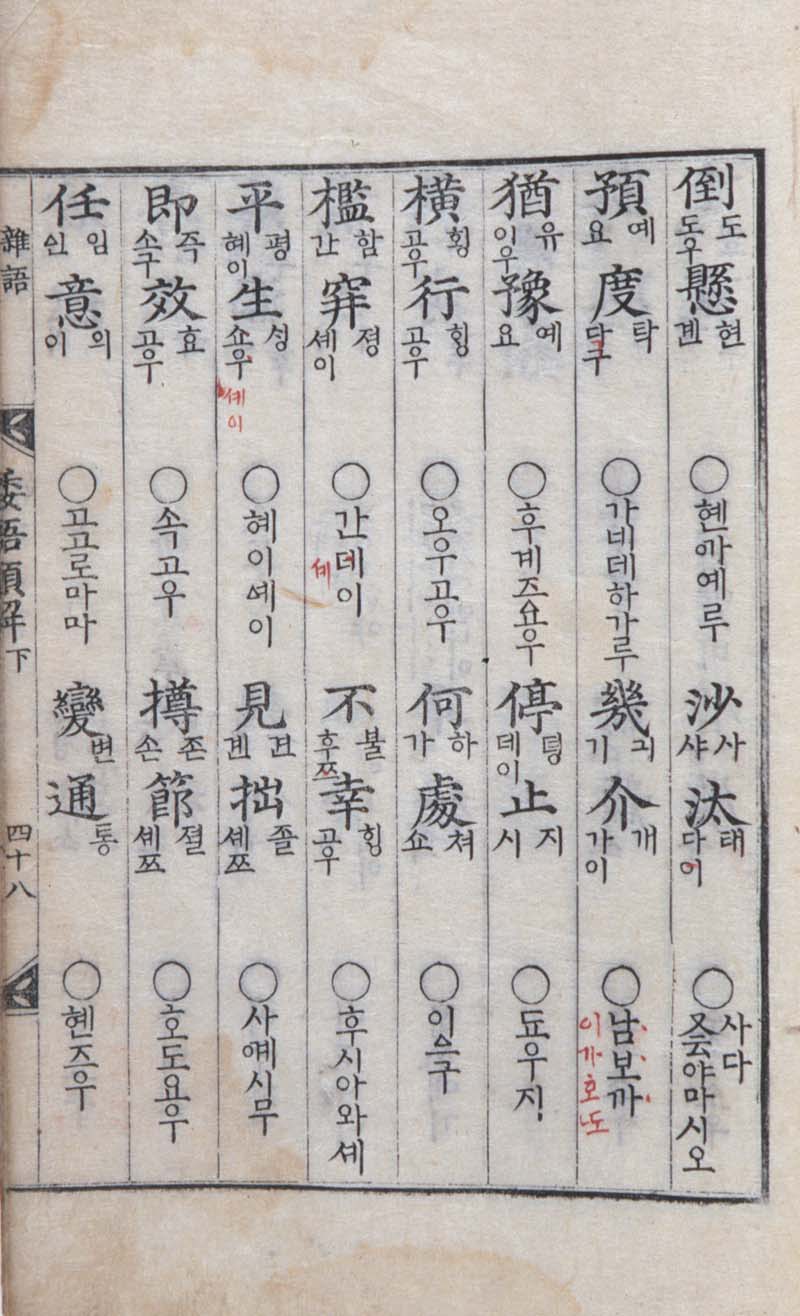 倒 도 도우 懸 현 겐 ○ 현까예루 沙 사 샤 汰 태 다이 ○ 사다 굿야마시오
預 예 요 度 탁 다구 ○ 가네데하가루 幾 긔 기 介 개 가이 ○ 남보까 이가호도
猶 유 이우 豫 예 요 ○ 후계즈요우 停 뎡 데이 止 지 시 ○ 됴우지
橫 횡 고우 行 힝 고우 ○ 오우고우 何 하 가 處 쳐 쇼 ○ 이슥구
檻 함 간 穽 졍 셰이 ○ 간데이 셰 不 불 후쯔 幸 힝 고우 ○ 후시아와셰
平 평 혜이 生 싱 쇼우 셰이 ○ 혜이셰이 見 견 겐 拙 졸 셰쯔 ○ 사예시무
即 즉 소구 效 효 고우 ○ 속고우 撙 존 손 節 졀 셰쯔 ○ 호도요우
任 임 인 意 의 이 ○ 고고로마마 變 변 通 통 ○ 헨즈우
雜語 倭語類解 下 四十八